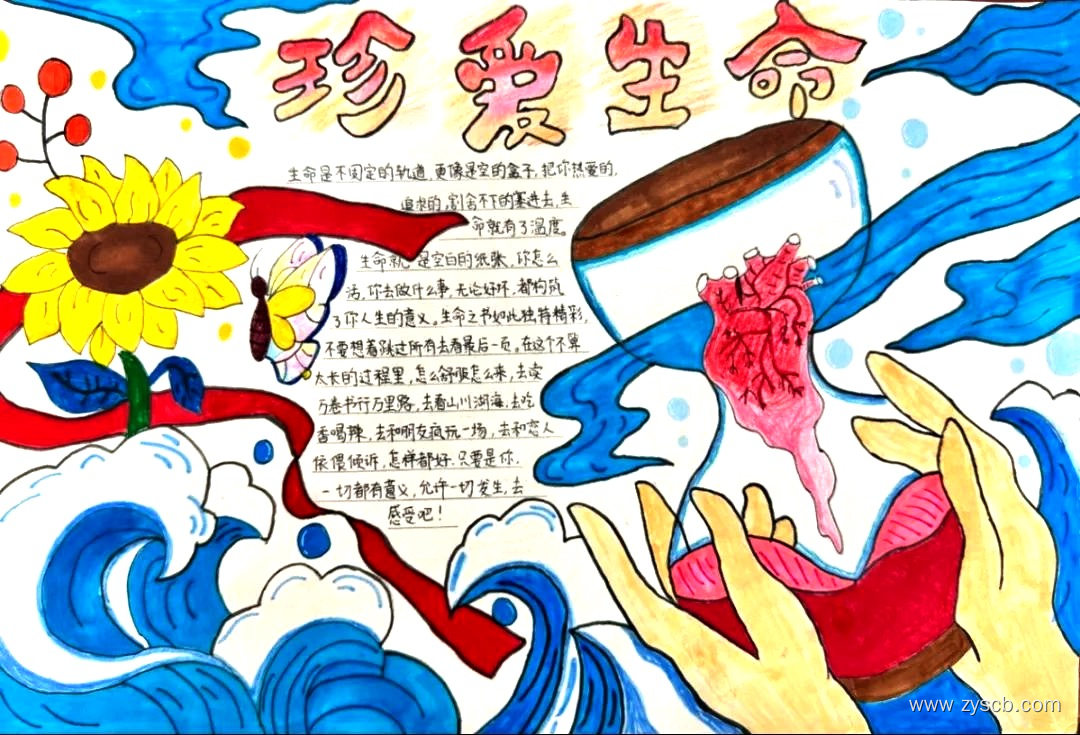 珍爱生命
生命是不固定的轨道,更像是空的盒子,把你热爱的,
追求的,割舍不下的塞进去,生
命就有了温度。
生命就 是空白的纸张,你怎么
活,你去做什么事,无论好坏,都构筑
了你人生的意义。生命之书如此独特精彩,
不要想着跳过所有去看最后一页。在这个不算
太长的过程里,怎么舒服怎么来,去读
万卷书行万里路,去看山川湖海,去吃
香喝辣,去和朋友疯玩一场,去和恋人
依偎倾诉,怎样都好,只要是你,
一切都有意义,允许一切发生,去
感受吧!
www.zyscb.com